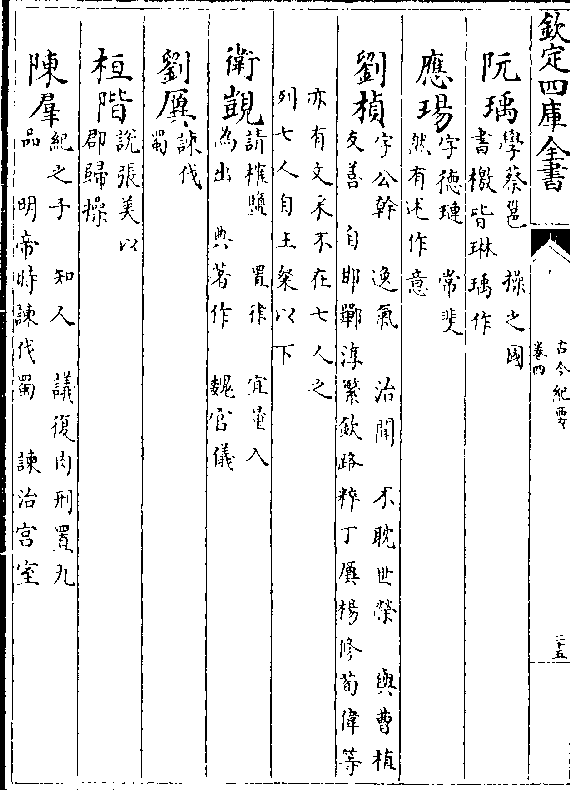 欽定四庫全書
古今紀要
卷四
二十五
阮瑀
學蔡邕 操之國
書檄皆琳瑀作
應瑒
字德璉 常斐
然有述作意
劉楨
字公幹 逸氣 洽聞 不耽世榮 與曹植
友善 自邯鄲淳繁欽路粹丁廙楊修荀偉等
亦有文采不在七人之
列七人自王粲以下
衛覬
請榷鹽 置律 宜量入
為出 典著作 魏官儀
劉廙
諫伐
蜀
桓階
說張羨以
郡歸操
陳羣
紀之子 知人 議復肉刑置九
品 明帝時諫伐蜀 諫治宫室